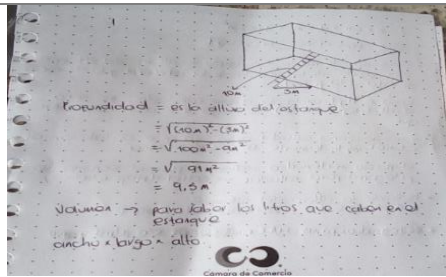 1
10m
3m
Profundidad = es la altura del estanque
= √(10m)² - (3m)²
= √100m² - 9m²
= √91m²
= 9,5m
Volumen → para saber los litros que caben en el estanque
ancho x largo x alto
Camara de Comercio